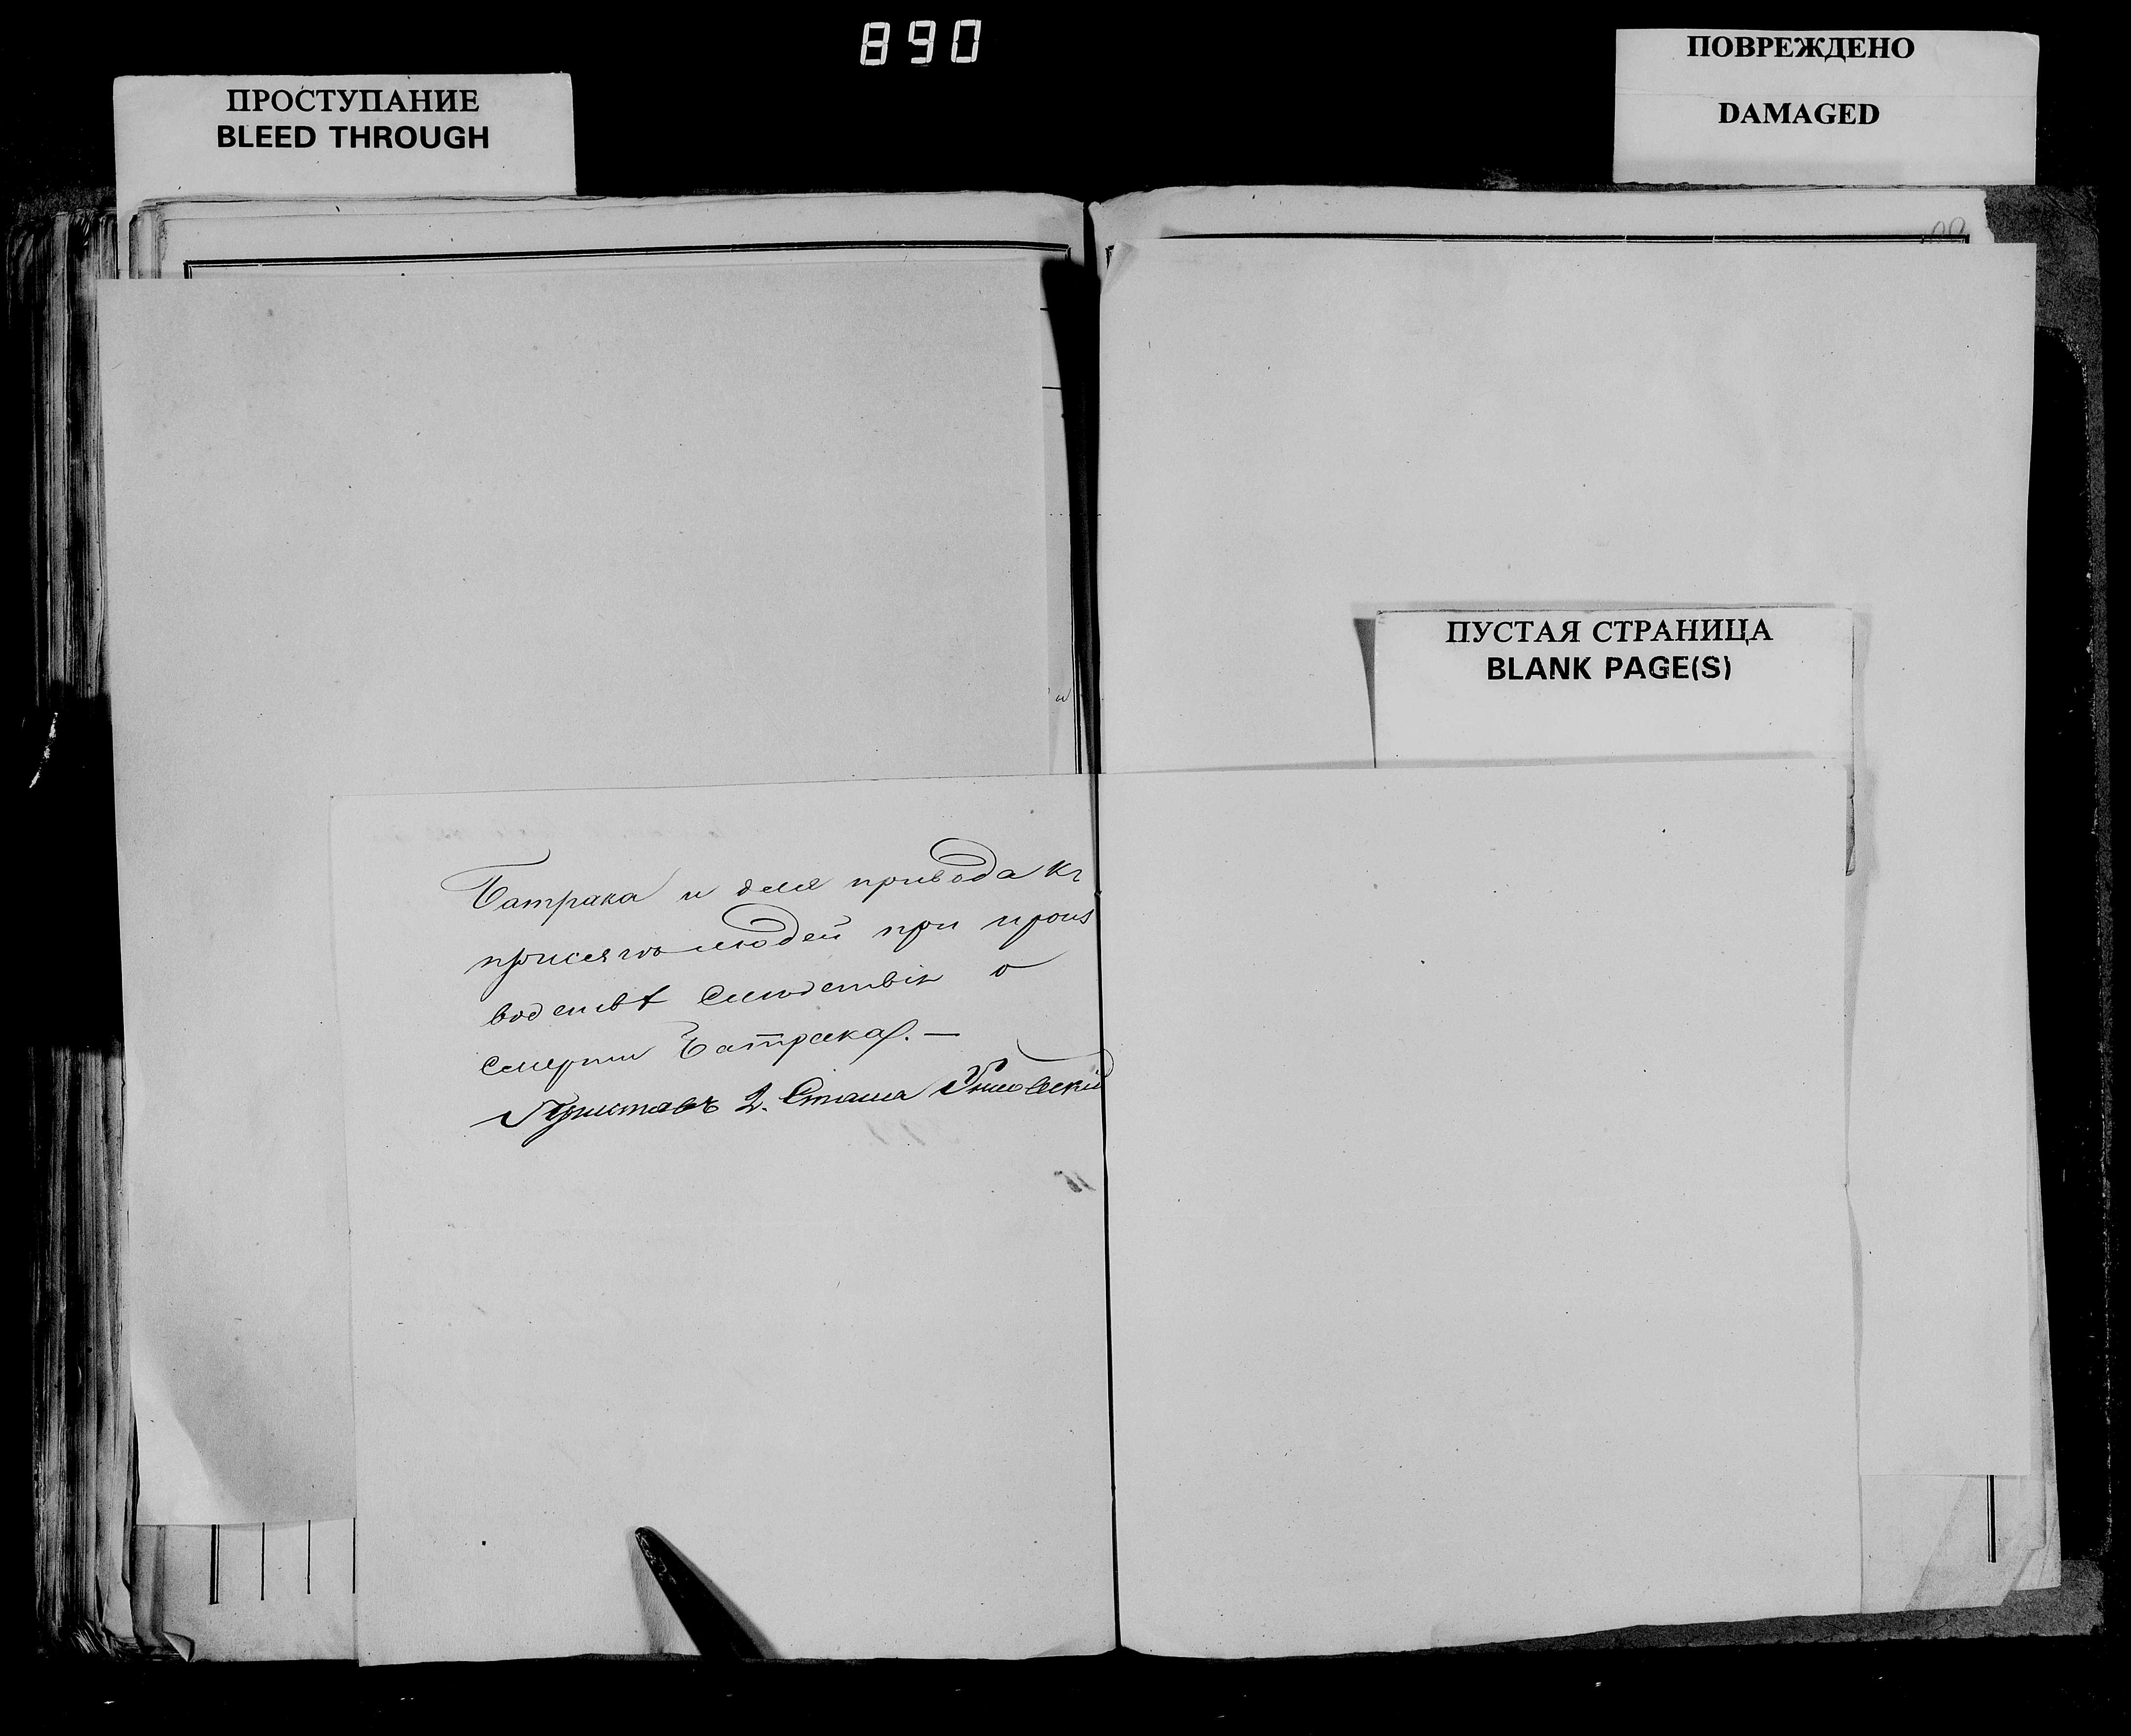 890
ПРОСТУПАНИЕ
BLEED THROUGH
ПОВРЕЖДЕНО
DAMAGED
ПУСТАЯ СТРАНИЦА
BLANK PAGE(S)
Батрака и для привода къ
присягѣ людей при произ
водствѣ слѣдствія о
смерти Батрака. —
Приставъ 2. Стана